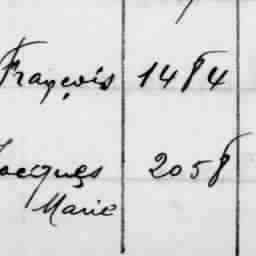 François 1484
Jacques 2058
Marie